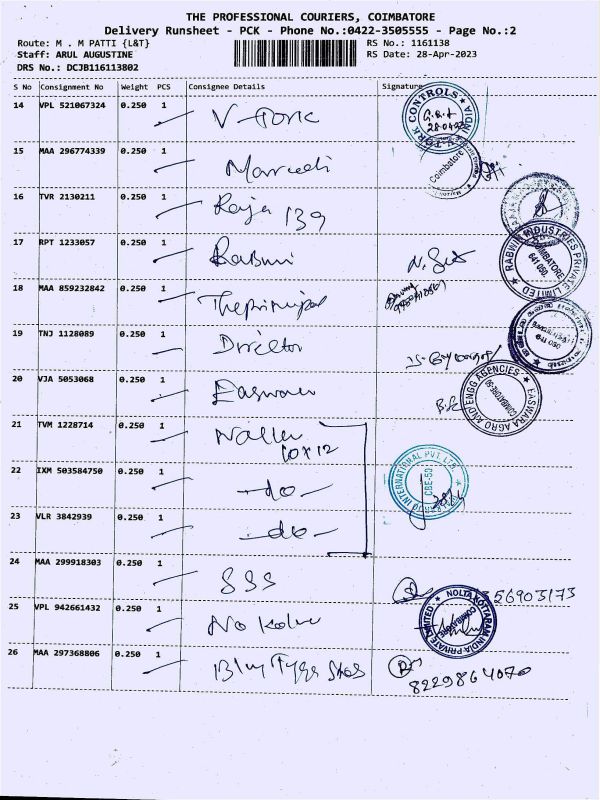 THE PROFESSIONAL COURIERS, COIMBATORE
Delivery Runsheet - PCK - Phone No.:0422-3505555 - Page No.:2
Route: M . M PATTI {L&T} RS No.: 1161138
Staff: ARUL AUGUSTINE RS Date: 28-Apr-2023
DRS No.: DCJB116113802
S No Consignment No Weight PCS Consignee Details Signature
14 VPL 521067324 0.250 1 V-Tork
V-TORK CONTROLS INDIA
15 MAA 296774339 0.250 1
Coimbatore
16 TVR 2130211 0.250 1 Raja 139
17 RPT 1233057 0.250 1
RABWIN INDUSTRIES PRIVATE LIMITED
COIMBATORE
641 050.
18 MAA 859232842 0.250 1 The principal
19 TNJ 1128089 0.250 1 Director
641 050
20 VJA 5053068 0.250 1
EASWARA AGRO AND ENGG AGENCIES
COIMBATORE-50
21 TVM 1228714 0.250 1
10x12
22 IXM 503584750 0.250 1 -do-
INTERNATIONAL PVT LTD.
CBE-50
23 VLR 3842939 0.250 1 -do-
24 MAA 299918303 0.250 1 SSS
56903173
25 VPL 942661432 0.250 1
NOLTA KOTTARAM INDIA PRIVATE LIMITED
COIMBATORE
26 MAA 297368806 0.250 1
8229864070